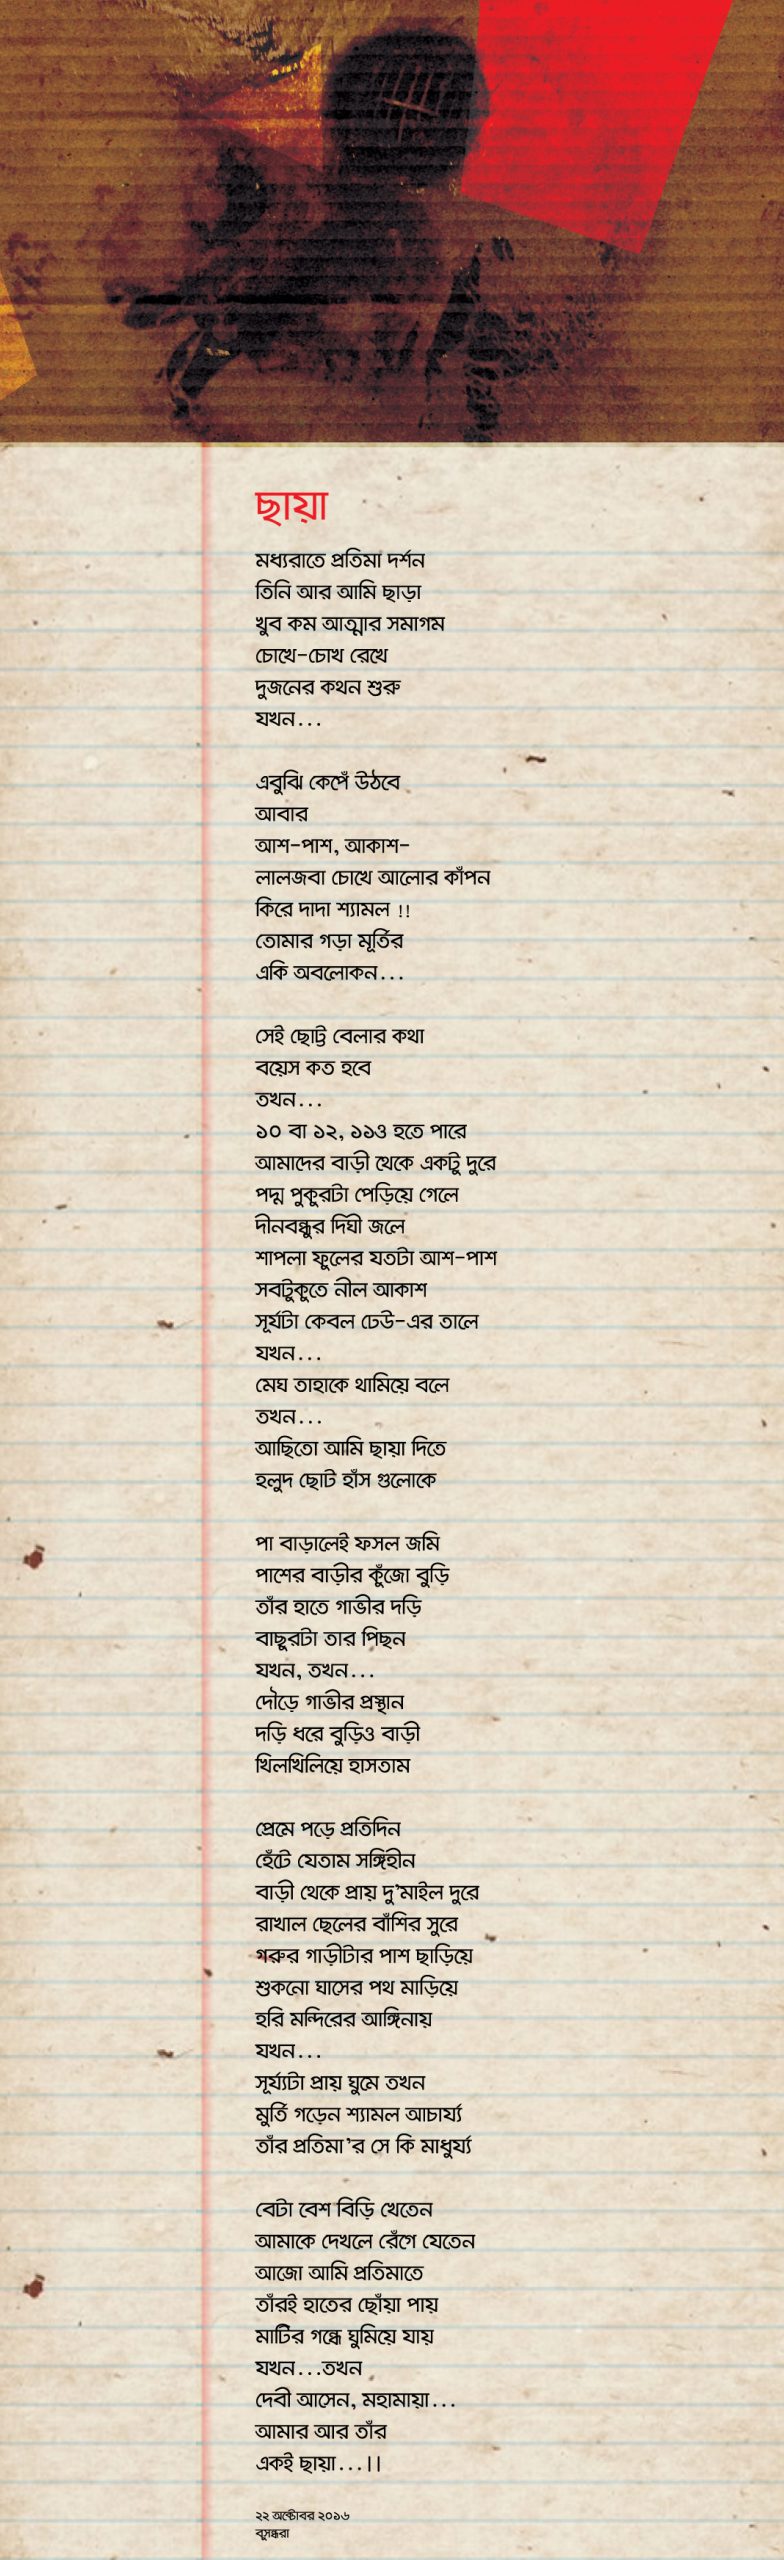 ছায়া
মধ্যরাতে প্রতিমা দর্শন
তিনি আর আমি ছাড়া
খুব কম আত্মার সমাগম
চোখে-চোখ রেখে
দুজনের কথন শুরু
যখন...
এবুঝি কেপেঁ উঠবে
আবার
আশ-পাশ, আকাশ-
লালজবা চোখে আলোর কাঁপন
কিরে দাদা শ্যামল !!
তোমার গড়া মূর্তির
একি অবলোকন...
সেই ছোট্ট বেলার কথা
বয়েস কত হবে
তখন...
১০ বা ১২, ১১ও হতে পারে
আমাদের বাড়ী থেকে একটু দুরে
পদ্ম পুকুরটা পেড়িয়ে গেলে
দীনবন্ধুর দিঘী জলে
শাপলা ফুলের যতটা আশ-পাশ
সবটুকুতে নীল আকাশ
সূর্যটা কেবল ঢেউ-এর তালে
যখন...
মেঘ তাহাকে থামিয়ে বলে
তখন...
আছিতো আমি ছায়া দিতে
হলুদ ছোট হাঁস গুলোকে
পা বাড়ালেই ফসল জমি
পাশের বাড়ীর কুঁজো বুড়ি
তাঁর হাতে গাভীর দড়ি
বাছুরটা তার পিছন
যখন, তখন...
দৌড়ে গাভীর প্রস্থান
দড়ি ধরে বুড়িও বাড়ী
খিলখিলিয়ে হাসতাম
প্রেমে পড়ে প্রতিদিন
হেঁটে যেতাম সঙ্গিহীন
বাড়ী থেকে প্রায় দু'মাইল দুরে
রাখাল ছেলের বাঁশির সুরে
গরুর গাড়ীটার পাশ ছাড়িয়ে
শুকনো ঘাসের পথ মাড়িয়ে
হরি মন্দিরের আঙ্গিনায়
যখন...
সূর্য্যটা প্রায় ঘুমে তখন
মুর্তি গড়েন শ্যামল আচার্য্য
তাঁর প্রতিমা'র সে কি মাধুর্য্য
বেটা বেশ বিড়ি খেতেন
আমাকে দেখলে রেঁগে যেতেন
আজো আমি প্রতিমাতে
তাঁরই হাতের ছোঁয়া পায়
মাটির গন্ধে ঘুমিয়ে যায়
যখন...তখন
দেবী আসেন, মহামায়া...
আমার আর তাঁর
একই ছায়া...।।
২২ অক্টোবর ২০১৬
বসুন্ধরা